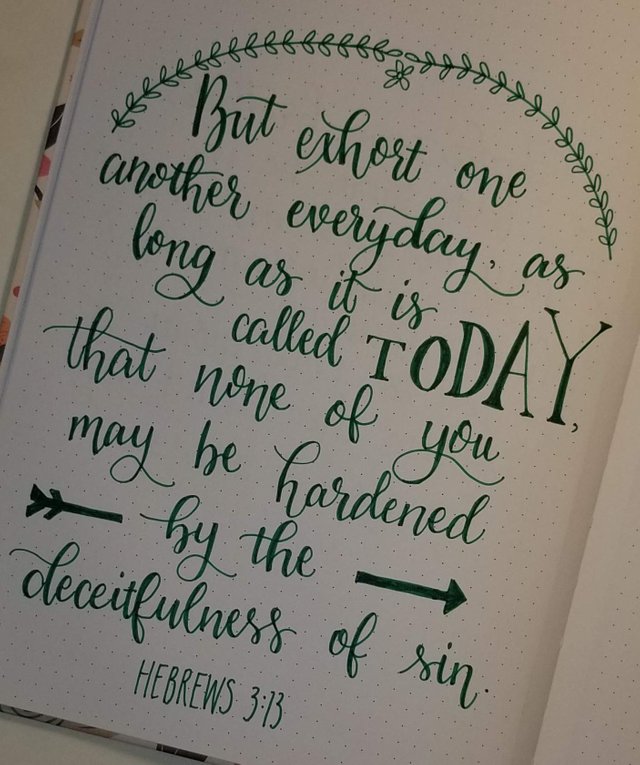 But exhort one
another everyday, as
long as it is
called TODAY,
that none of you
may be hardened
by the
deceitfulness of sin.
HEBREWS 3:13